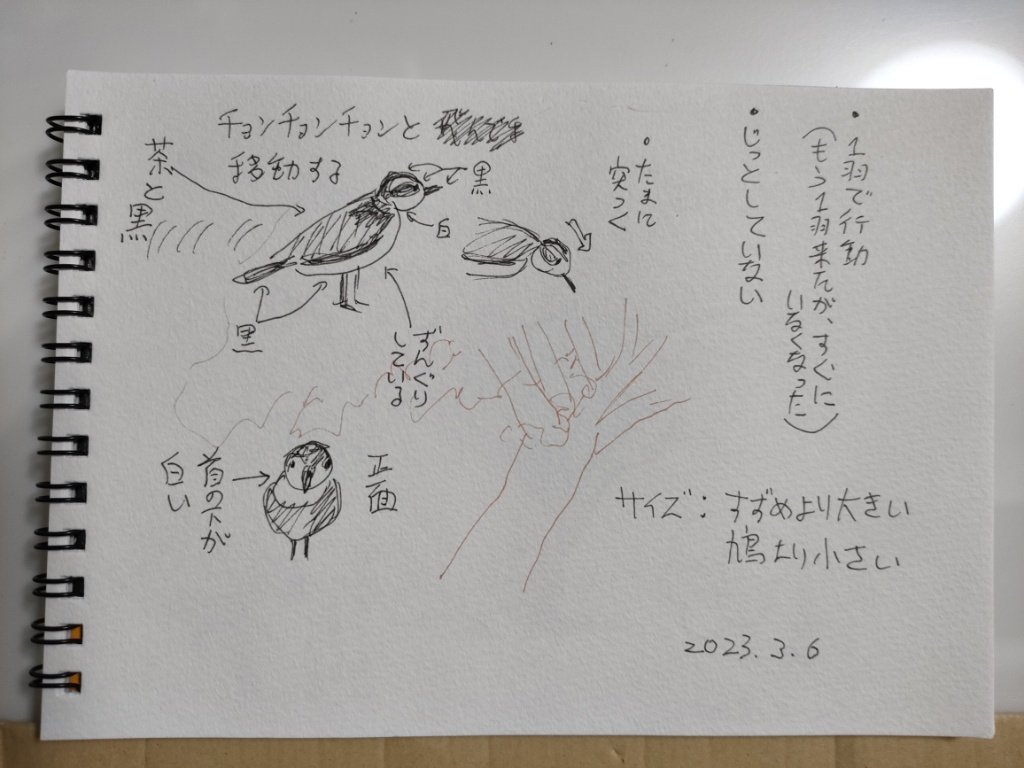 ・1羽で行動
(もう1羽来たが、すぐに
いなくなった)
・じっとしていない
・たまに
突つく
チョンチョンチョンと
移動する
茶と黒
黒
白
黒
ずんぐり
している
正面
首の下が
白い
サイズ：すずめより大きい
鳩より小さい
2023.3.6